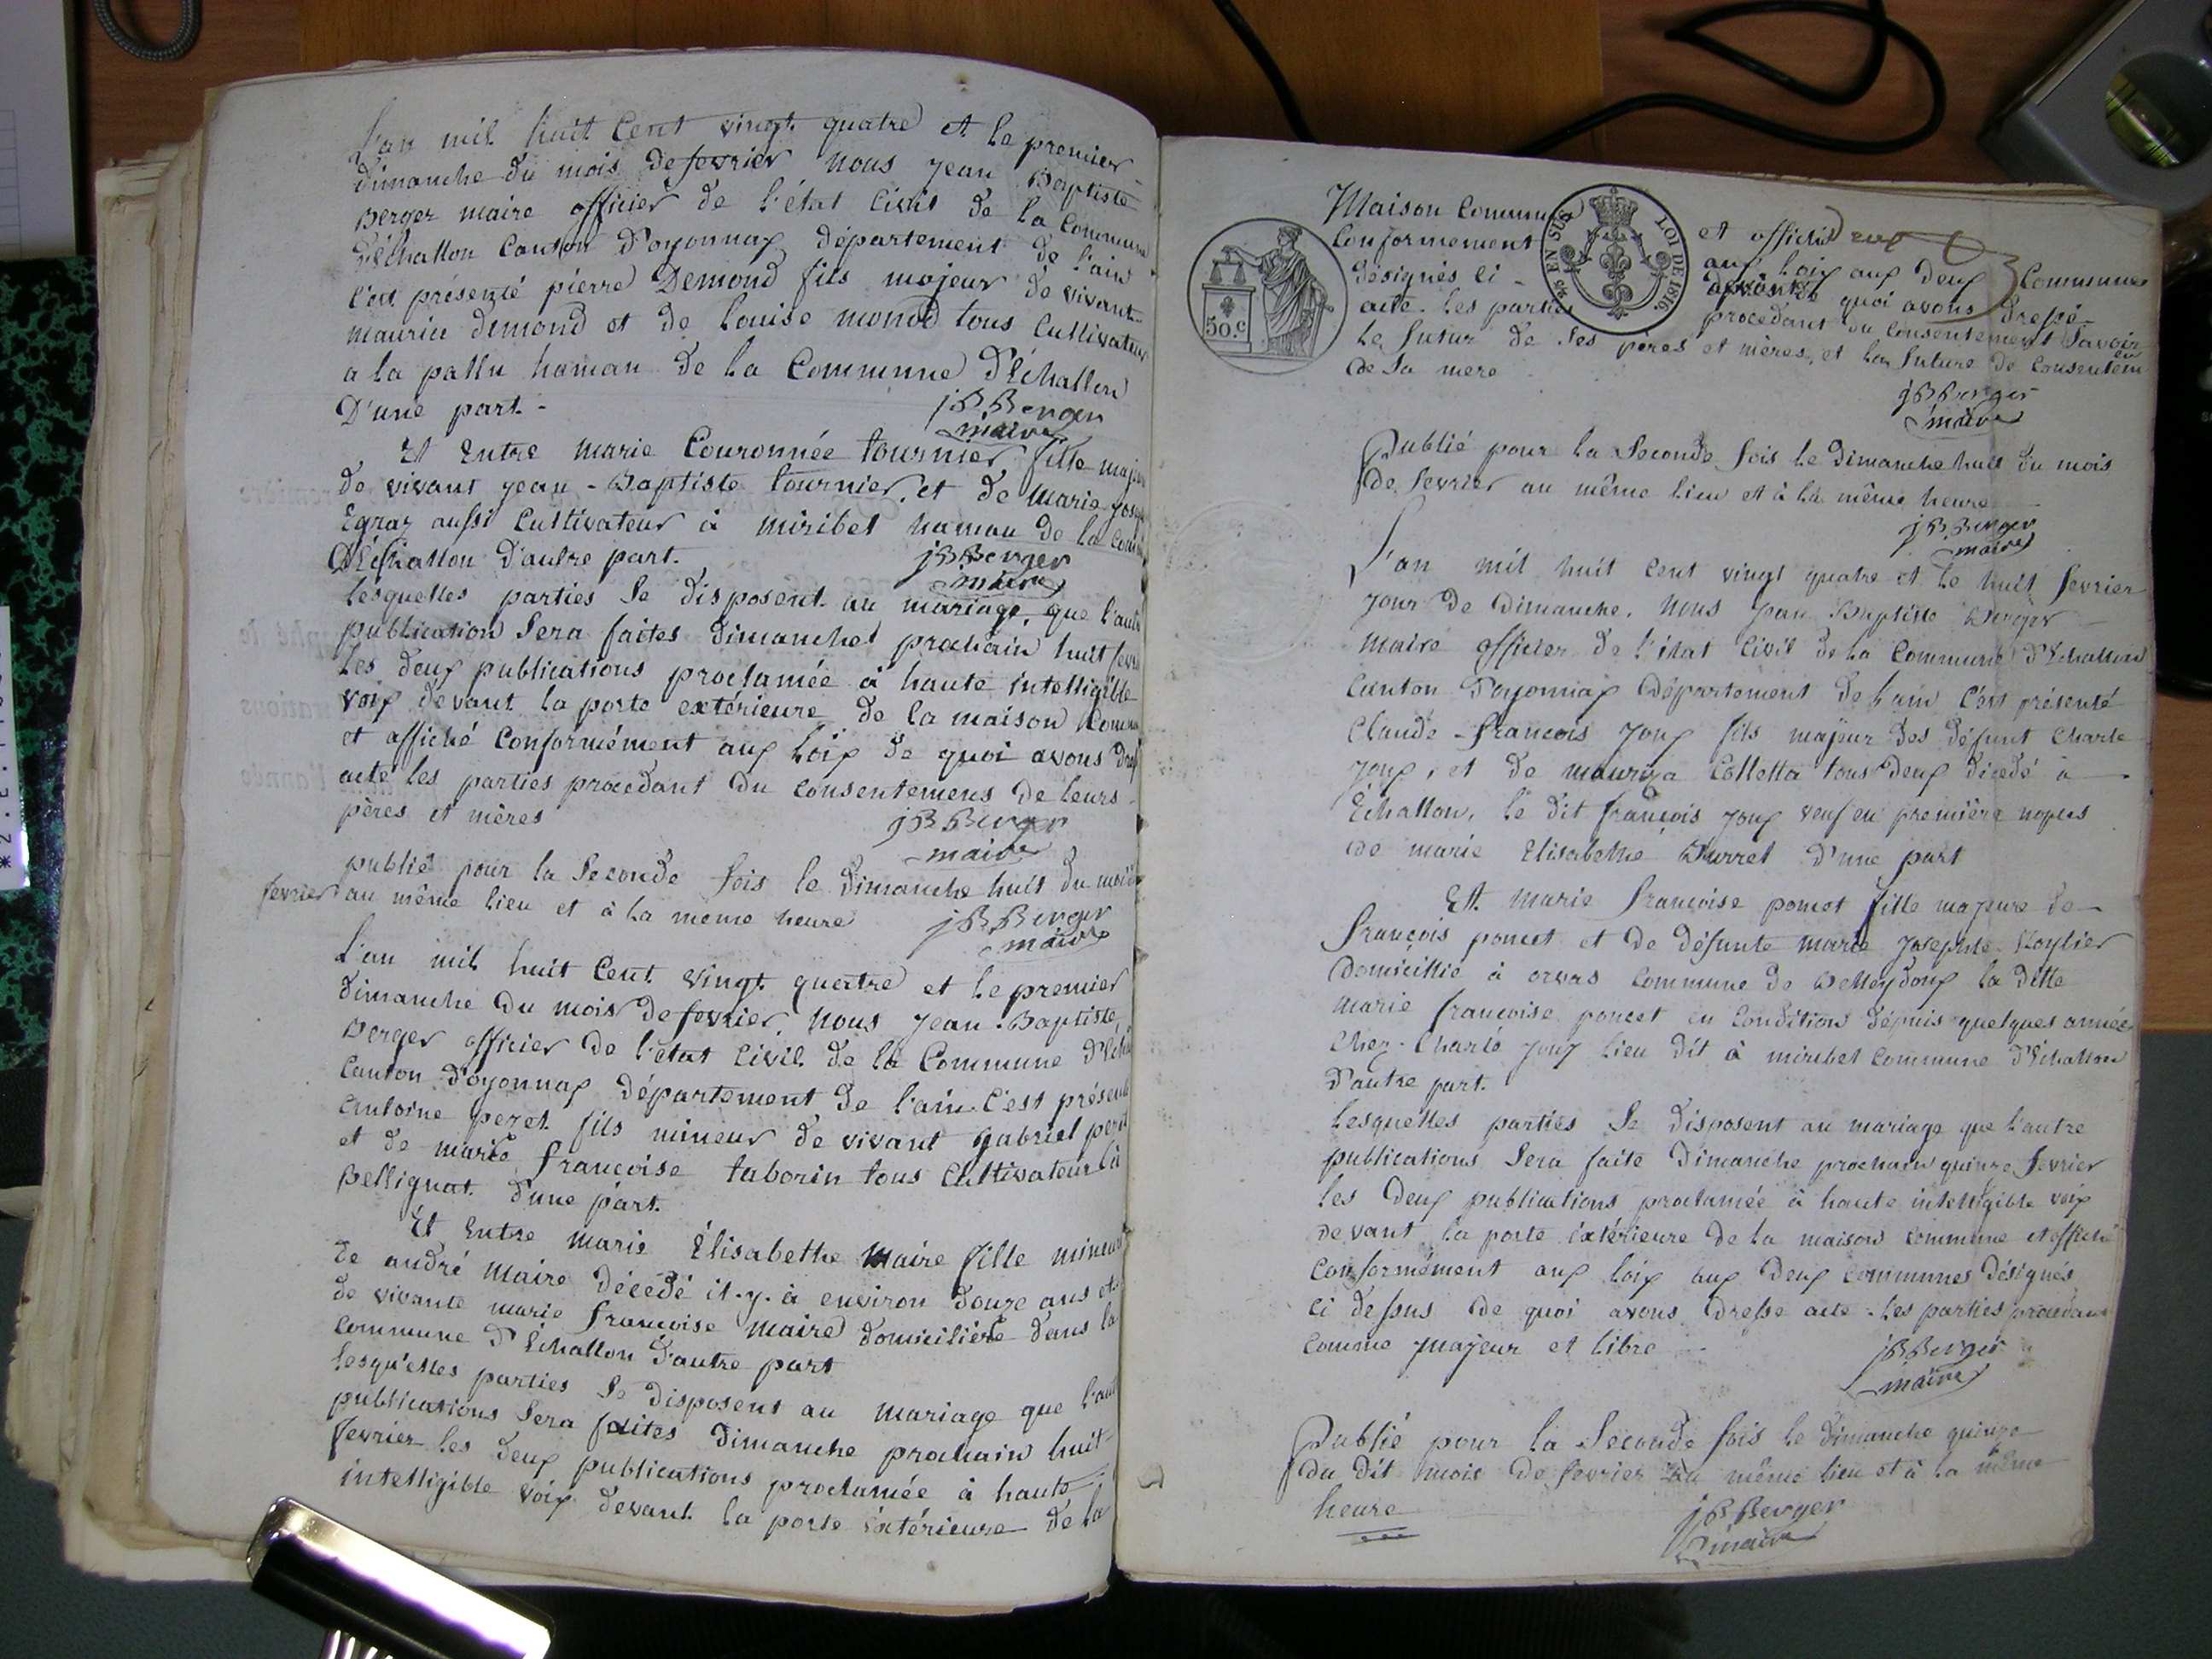 L'an mil huit Cent vingt quatre et le premier
dimanche du mois de fevrier nous jean Baptiste
Berger maire officier de l'état Civil de la Commune
d'échallon Canton d'oyonnax département de l'ain
C'est présenté pierre Demond fils majeur de vivant
maurice demond et de louise monod tous Cultivateur
a la pallu hamau de la Commune d'échallon
D'une part.
jBBerger
maire
Et Entre marie Couronnée tournier fille maj
de vivant jean-Baptiste tournier, et de marie jos
Egraz aussi Cultivateur à miribel hamau de la com
d'échallon d'autre part.
jBBerger
maire
lesquelles parties Se disposent au mariage, que l'autre
publication Sera faites dimanche prochain huit fevr
les deux publications proclamée à haute intelligible
voix devant la porte extérieure de la maison Comm
et affiché Conformément aux loix de quoi avons dres
acte les parties procedant du Consentement de leurs
pères et mères
jBBerger
maire
publié pour la Seconde fois le dimanche huit du mois de
fevrier au même lieu et à la meme heure
jBBerger
maire
L'an mil huit Cent vingt quatre et le premier
dimanche du mois de fevrier, nous jean-Baptiste
Berger officier de l'état Civil de la Commune d'Echa
Canton d'oyonnax département de l'ain C'est présen
antoine peret fils mineur de vivant gabriel peret
et de marie francoise taborin tous Cultivateur à
Bellignat d'une part.
Et Entre marie Élisabethe Maire fille mineur
de andré Maire décédé il-y-à environ douze ans et
de vivante marie francoise Maire domicilière dans la
Commune d'Echallon d'autre part
lesqu'elles parties Se disposent au mariage que l'aut
publications Sera faites dimanche prochain huit
fevrier les deux publications proclamée à haute
intelligible voix devant la porte extérieure de la
Maison Commune et affiché aux
Conformement aux loix aux deux Communes
désignés ci- quoi avons dressé
acte. les parties procedant du Consentement Savoir
Le futur de Ses pères et mères, et la future de Consentem
de Sa mere
50.c
EN SUS LOI DE 1816.
jBBerger
maire
Publié pour la Seconde fois le dimanche huit du mois
de fevrier au même lieu et à la même heure
jBBerger
maire
L'an mil huit Cent vingt quatre et le huit fevrier
jour de dimanche, nous jean Baptiste Berger
maire officier de l'état Civil de la Commune d'Echallon
Canton d'oyonnax département de l'ain C'est présenté
Claude-francois joux fils majeur des défunt Charle
joux, et de mauriza Colletta tous deux décedé à
Echallon, le dit françois joux veuf en première nopces
de marie Elisabethe Burret d'une part
Ett marie françoise poncet fille majeure de
françois poncet et de défunte marie josephte
Domicillié à orvas Commune de Belleydoux la ditte
marie francoise poncet en Condition depuis quelques années
Chez-Charle joux lieu dit à miribel Commune d'échallon
d'autre part.
Lesquelles parties Se disposent au mariage que l'autre
publications Sera faite dimanche prochain quinze fevrier
les deux publications proclamée à haute intelligible voix
devant la porte extérieure de la maison commune et affiché
Conformément aux loix aux deux communes désignés
ci dessus de quoi avons dresse acte. les parties procedant
comme majeur et libre
jBBerger
maire
Publié pour la Seconde fois le dimanche quinze
du dit mois de fevrier au même lieu et à la même
heure
jBBerger
maire